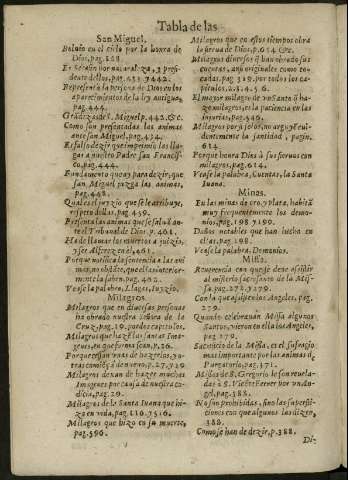 Tabla de las
San Miguel.
Bolvio en el cielo por la honra de
Dios, pag.128.
Es Serafin por naturaleza, y presi-
dente dellos, pag.431 y 442.
Representa la persona de Dios en los
aparecimientos de la ley antigua,
pag.444.
Grādezas de S. Miguel p.442.&c.
Como son presentadas las animas
ante san Miguel, pag.454.
Es falso dezir que imprimio las lla-
gas a nuestro Padre san Francis-
co, pag.444.
Fundamento que ay para dezir, que
san Miguel juzga las animas,
pag.448.
Qual es el juyzio que se le atribuye,
respeto dellas, pag.459.
Presenta las animas que se salvā an-
te el Tribunal de Dios. p.461.
Ha de llamar los muertos a juizio,
y ser Alferez en el, 461.
Porque notifica la sentencia a las ani
mas, no obstāte, que ellas interior-
mente la saben. pag.462.
Vease la palabra, Llagas, Iuyzio.
Milagros.
Milagros que en diversas personas
ha obrado nuestra señora de la
Cruz, pag.19. por dos capitulos.
Milagros que hazē las santas Ima-
gines, en que forma sean, p.26.
Porque cessan unas de hazerlos, y o-
tras comiēçā de nuevo, p.27. y 29
Milagros dexan de hazer muchas
Imagines por causa de nuestra co-
dicia, pag.29.
Milagros de la Santa Iuana que hi-
zo en vida, pag.116. y 516.
Milagros que hizo en su muerte,
pag.596.
Milagros que en estos tiempos obra
la sierva de Dios, p.654 &c.
Milagros diversos q̃ han obrado sus
cuentas, assi originales como to-
cadas, pag.319. por todos los ca-
pitulos, 2.3.4.5.6.
El mayor milagro de un Santo q̃ ha-
ze milagros, es la paciencia en las
injurias, pag.646.
Milagros por si solos, no arguyē eui-
dentemente la santidad, pagin.
614.
Porque honra Dios à sus siervos con
milagros, pag.614.
Vease la palabra, Cuentas, la Santa
Iuana.
Minas.
En las minas de oro, y plata, habitā
muy frequentemente los demo-
nios, pag.198 y 199.
Daños notables que han hecho en
ellas, pag.198.
Vease la palabra, Demonios.
Missa.
Reverencia con que se deve assistir
al misterio sacrosanto de la Mis-
sa, pag.272. y 279.
Con la que assisten los Angeles, pag.
279.
Quando celebravan Missa algunos
Santos, vieron en ella los Angeles,
pag 279.
Sacrificio de la Missa, es el sufragio
mas importante por las animas d̄
Purgatorio, pag.371.
Missas de S. Gregorio se son revela-
das à S. Vicente Ferrer por un An-
gel, pag.388.
No son prohibidas, sino las supersticio-
nes con que algunos las dizen,
388.
Como se han de dezir, p.388.
Di-